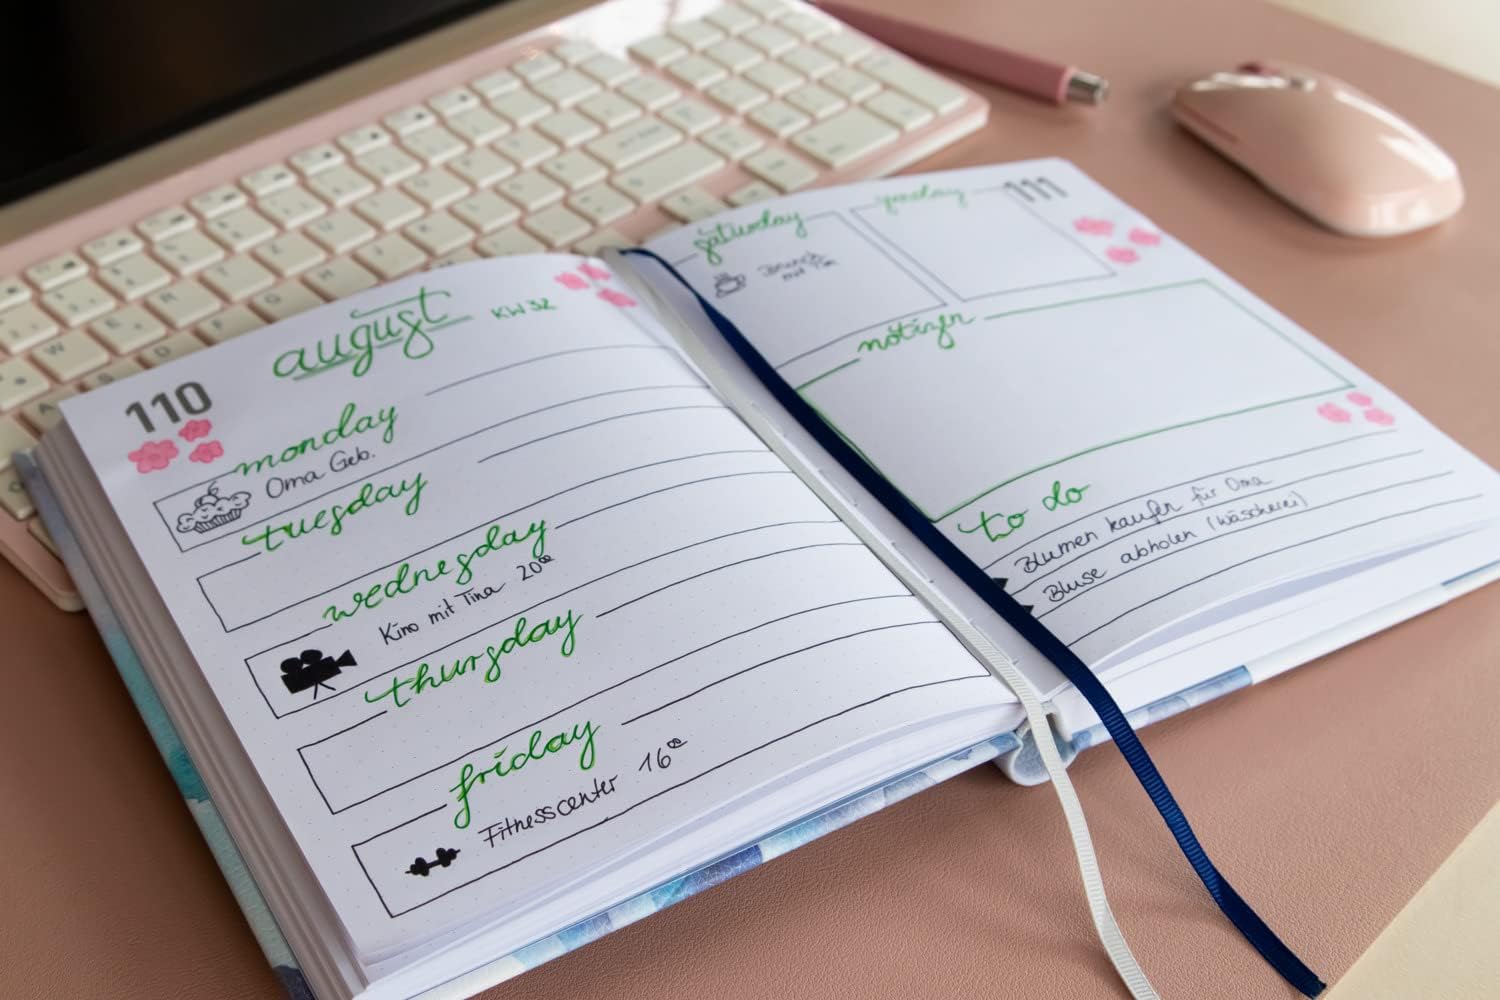 110
august
KW 32
monday
Oma Geb.
tuesday
wednesday
Kino mit Tina 20⁰⁰
thursday
friday
Fitnesscenter 16⁰⁰
111
saturday
Brunch
mit Tim
sunday
notizen
to do
Blumen kaufen für Oma
Bluse abholen (Wäscherei)